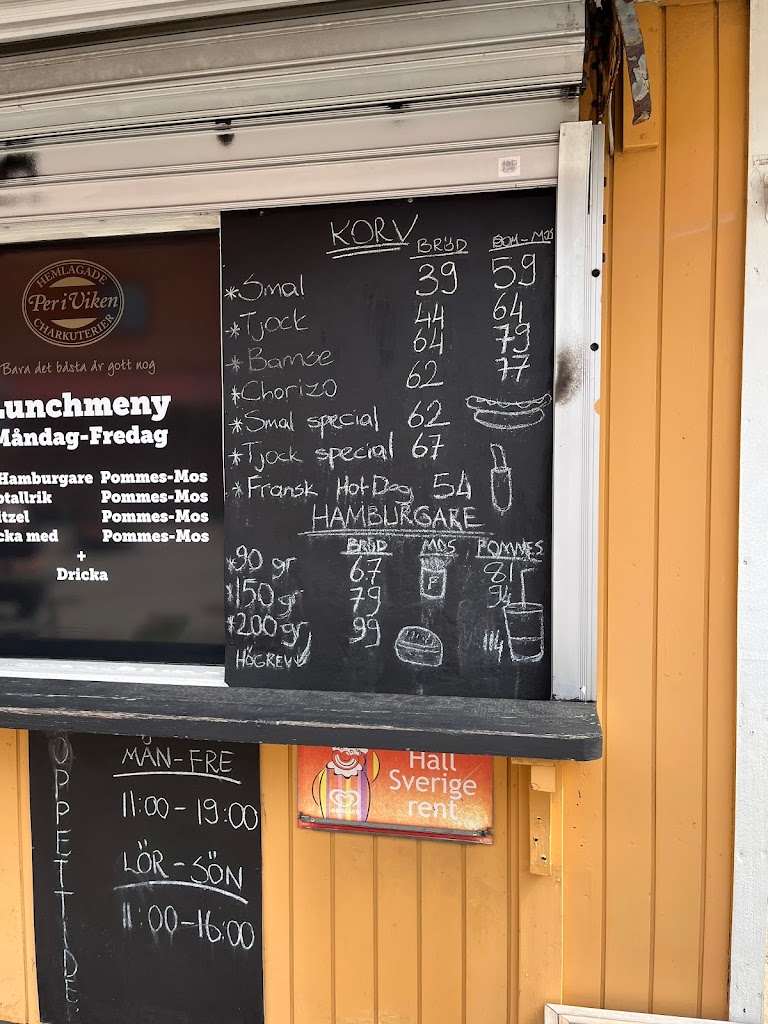 HEMLAGADE
Per i Viken
CHARKUTERIER
Bara det bästa är gott nog
Lunchmeny
Måndag-Fredag
Hamburgare Pommes-Mos
Pommes-Mos
Pommes-Mos
med Pommes-Mos
+
Dricka
KORV
BRÖD POM-MOS
*Smal 39 59
*Tjock 44 64
*Bamse 64 79
*Chorizo 62 77
*Smal special 62
*Tjock special 67
*Fransk Hot Dog 54
HAMBURGARE
BRÖD MOS POMMES
*90 gr 67 81
*150 gr 79 94
*200 gr 99 114
HÖGREV
F
ÖPPETTIDER
MÅN-FRE
11:00-19:00
LÖR-SÖN
11:00-16:00
Håll
Sverige
rent